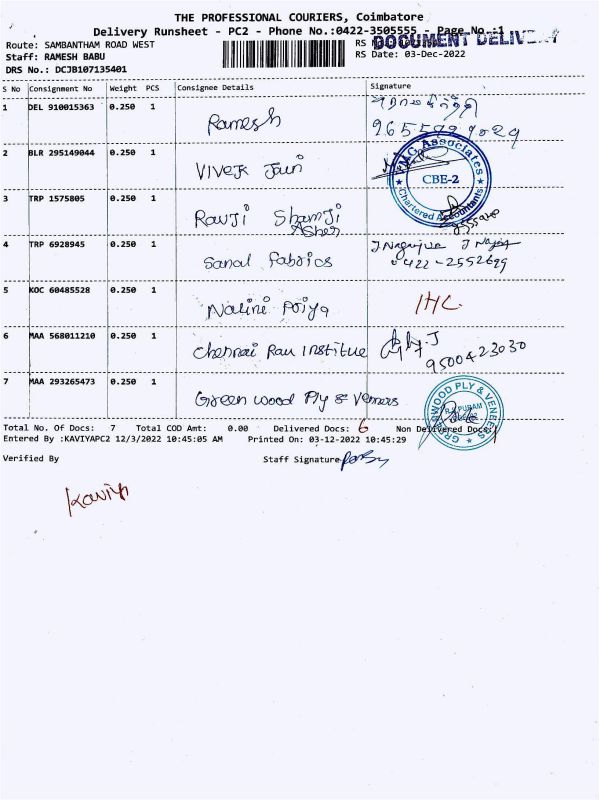 THE PROFESSIONAL COURIERS, Coimbatore
Delivery Runsheet - PC2 - Phone No.:0422-3505555 - Page No.:1
DOCUMENT DELIV
Route: SAMBANTHAM ROAD WEST RS
Staff: RAMESH BABU RS Date: 03-Dec-2022
DRS No.: DCJB107135401
S No Consignment No Weight PCS Consignee Details Signature
1 DEL 910015363 0.250 1 Ramesh
2 BLR 295149044 0.250 1 Vivek Jain
MG Associates
CBE-2
Chartered Accountants
3 TRP 1575805 0.250 1 Ravji Shamji
Asher
4 TRP 6928945 0.250 1 Sanal Fabrics
0422-2552699
5 KOC 60485528 0.250 1 Nalini Priya IHC.
6 MAA 568011210 0.250 1 Chennai Rau Institue
9500423030
7 MAA 293265473 0.250 1 Green wood Ply & Veneers
GREENWOOD PLY & VENEERS
R.S PURAM
Total No. Of Docs: 7 Total COD Amt: 0.00 Delivered Docs: 6 Non Delivered Docs: 1
Entered By :KAVIYAPC2 12/3/2022 10:45:05 AM Printed On: 03-12-2022 10:45:29
Verified By Staff Signature
Kaviya